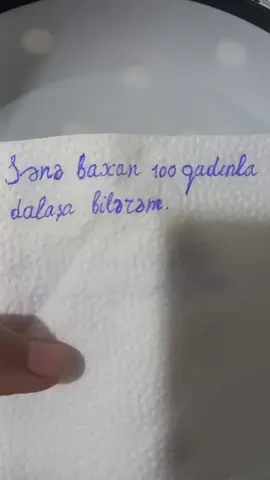 Sənə baxan 100 qadınla
dalaşa bilərəm.